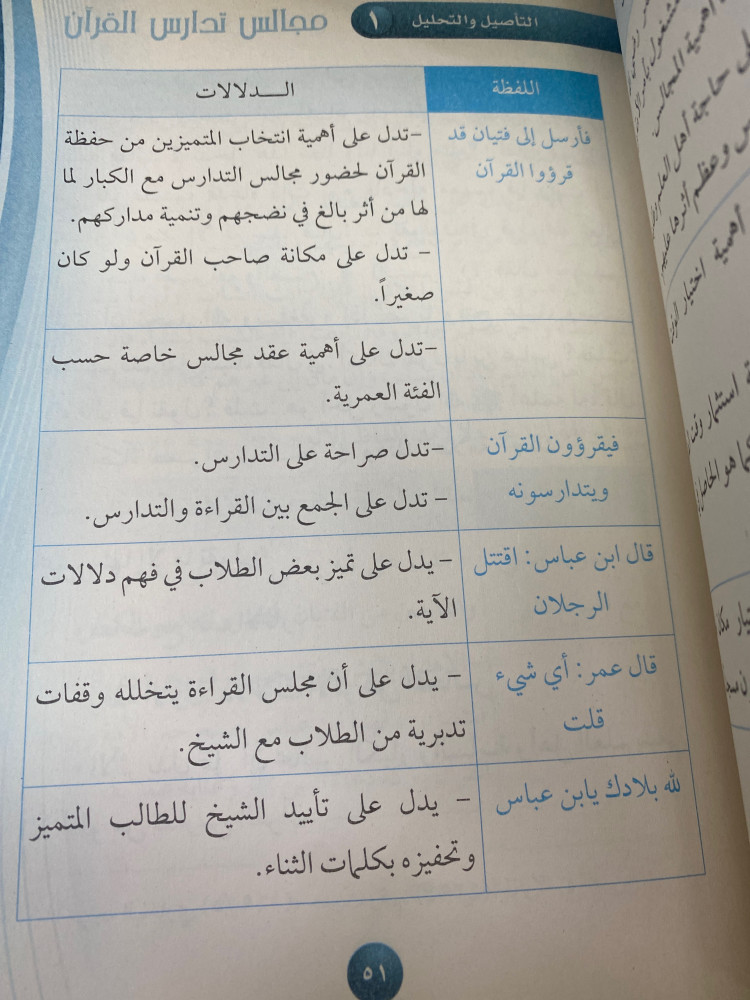 التأصيل والتحليل ١ مجالس تدارس القرآن
اللفظة
الـــدلالات
فأرسل إلى فتيان قد
قرؤوا القرآن
-تدل على أهمية انتخاب المتميزين من حفظة
القرآن لحضور مجالس التدارس مع الكبار لما
لها من أثر بالغ في نضجهم وتنمية مداركهم.
- تدل على مكانة صاحب القرآن ولو كان
صغيراً.
-تدل على أهمية عقد مجالس خاصة حسب
الفئة العمرية.
فيقرؤون القرآن
ويتدارسونه
-تدل صراحة على التدارس.
- تدل على الجمع بين القراءة والتدارس.
قال ابن عباس: اقتتل
الرجلان
- يدل على تميز بعض الطلاب في فهم دلالات
الآية.
قال عمر: أي شيء
قلت
- يدل على أن مجلس القراءة يتخلله وقفات
تدبرية من الطلاب مع الشيخ.
لله بلادك يابن عباس
- يدل على تأييد الشيخ للطالب المتميز
وتحفيزه بكلمات الثناء.
٥١
أهمية المجالس
حاجة أهل العلم
وعظم أثرها
أهمية اختيار
استثمار
كما هو الحاصل